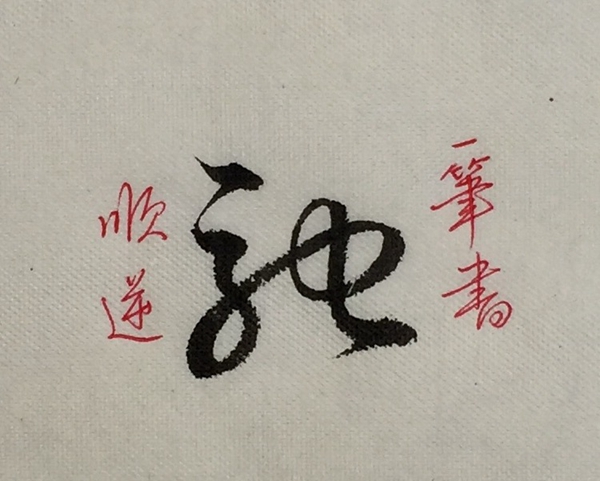 一筆書
馳
順逆